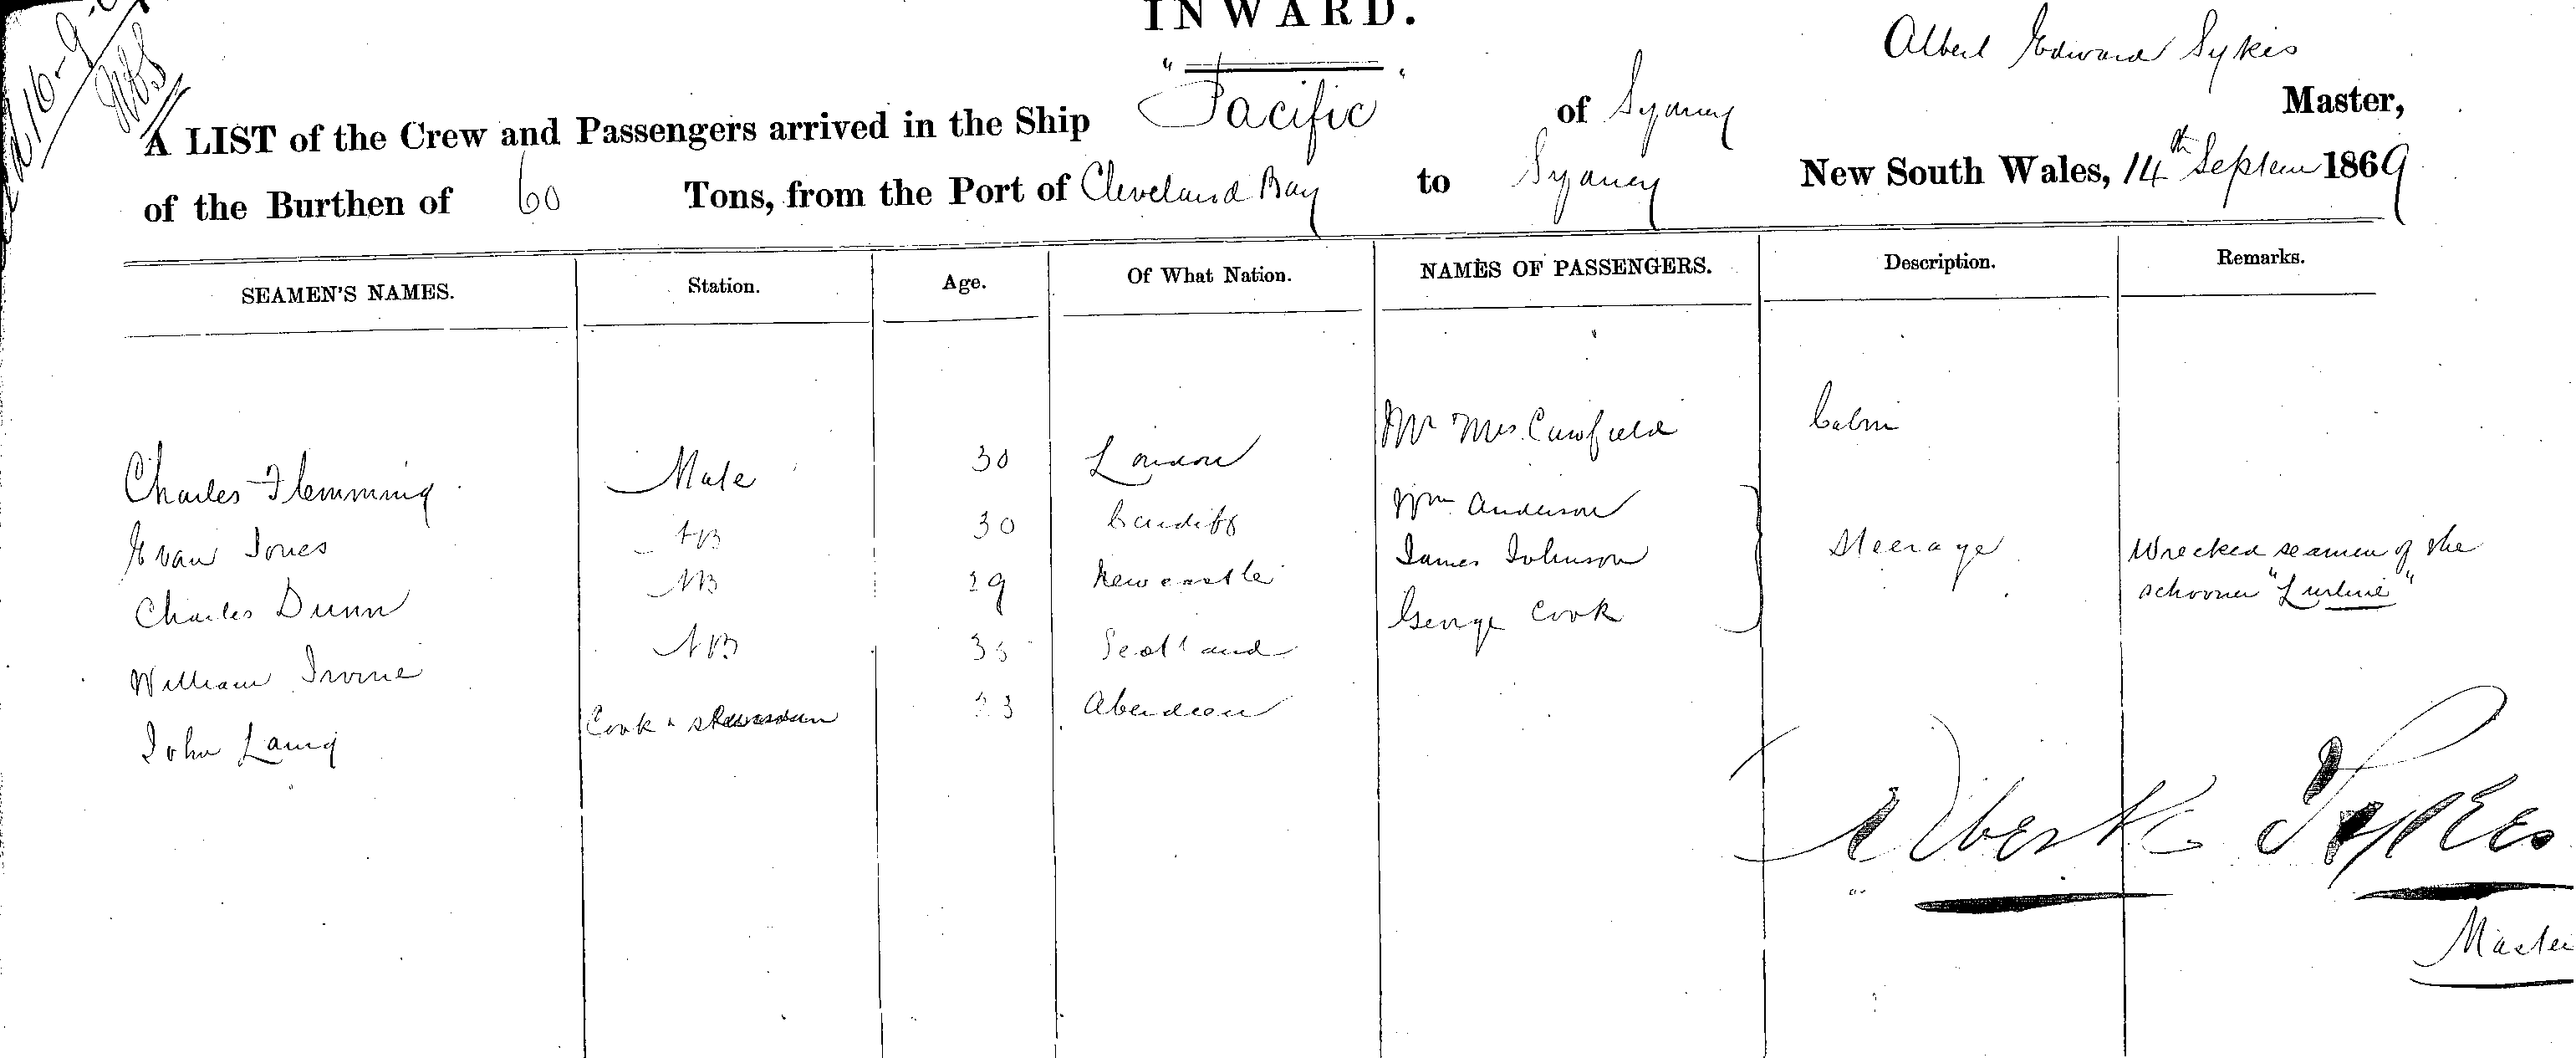 INWARD.
Albert Edward Sykes
A LIST of the Crew and Passengers arrived in the Ship "Pacific" of Sydney Master,
of the Burthen of 60 Tons, from the Port of Cleveland Bay to Sydney New South Wales, 14th Septem 1869
SEAMEN'S NAMES. Station. Age. Of What Nation. NAMES OF PASSENGERS. Description. Remarks.
Mr Mrs Cabin
Charles Flemming Mate 30 London
Wm Anderson
Evan Jones AB 30 Cardiff
James Johnson Steerage Wrecked seamen of the
Charles Dunn AB 29 Newcastle
schooner "Lurline"
George Cook
William Irvine AB 35 Scotland
John Laing Cook & 23 Aberdeen
Albert E Sykes
Master